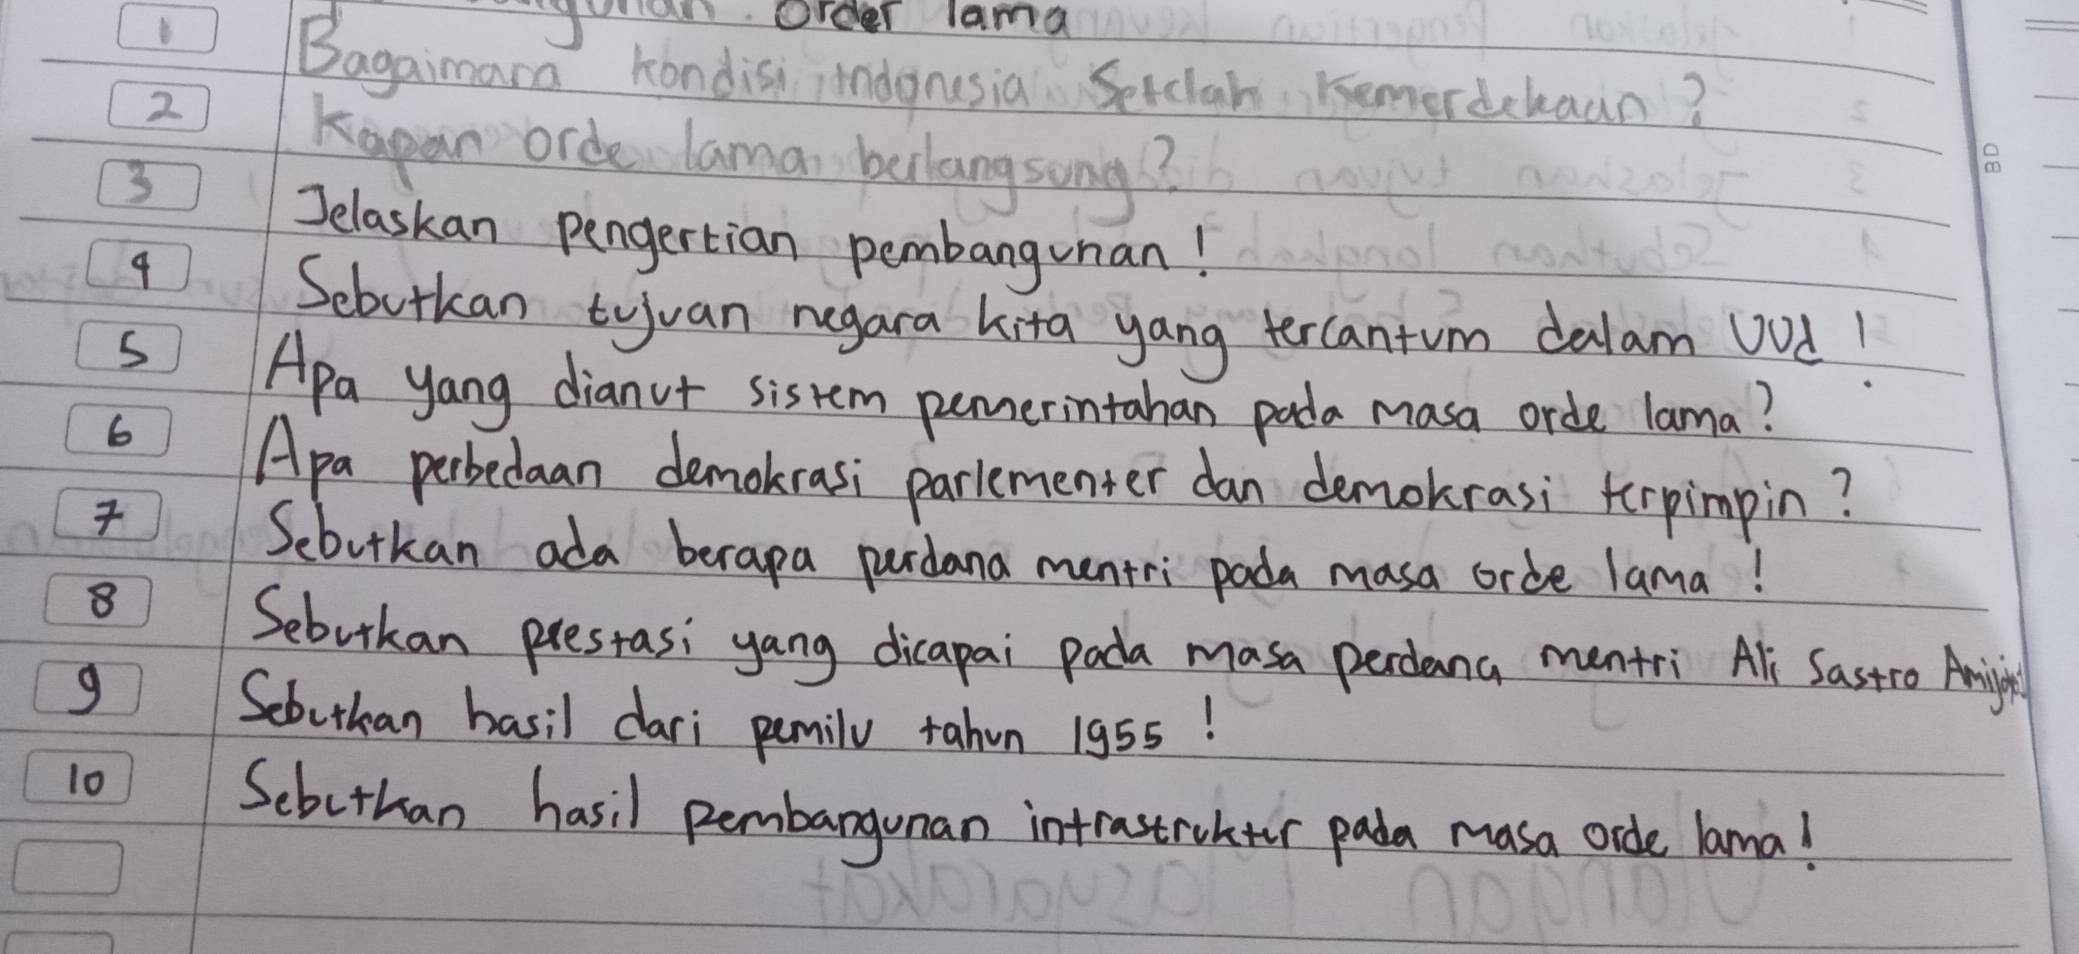 order lama
1 Bagaimana kondisi indonesia Setelah Kemerdekaan?
2 Kapan orde lama berlangsung?
3 Jelaskan pengertian pembangunan!
4 Sebutkan tujuan negara kita yang tercantum dalam UUd!
5 Apa yang dianut sistem pemerintahan pada masa orde lama?
6 Apa perbedaan demokrasi parlementer dan demokrasi terpimpin?
7 Sebutkan ada berapa perdana mentri pada masa orde lama!
8 Sebutkan prestasi yang dicapai pada masa perdana mentri Ali Sastro
9 Sebutkan hasil dari pemilu tahun 1955!
10 Sebutkan hasil pembangunan intrastruktur pada masa orde lama!